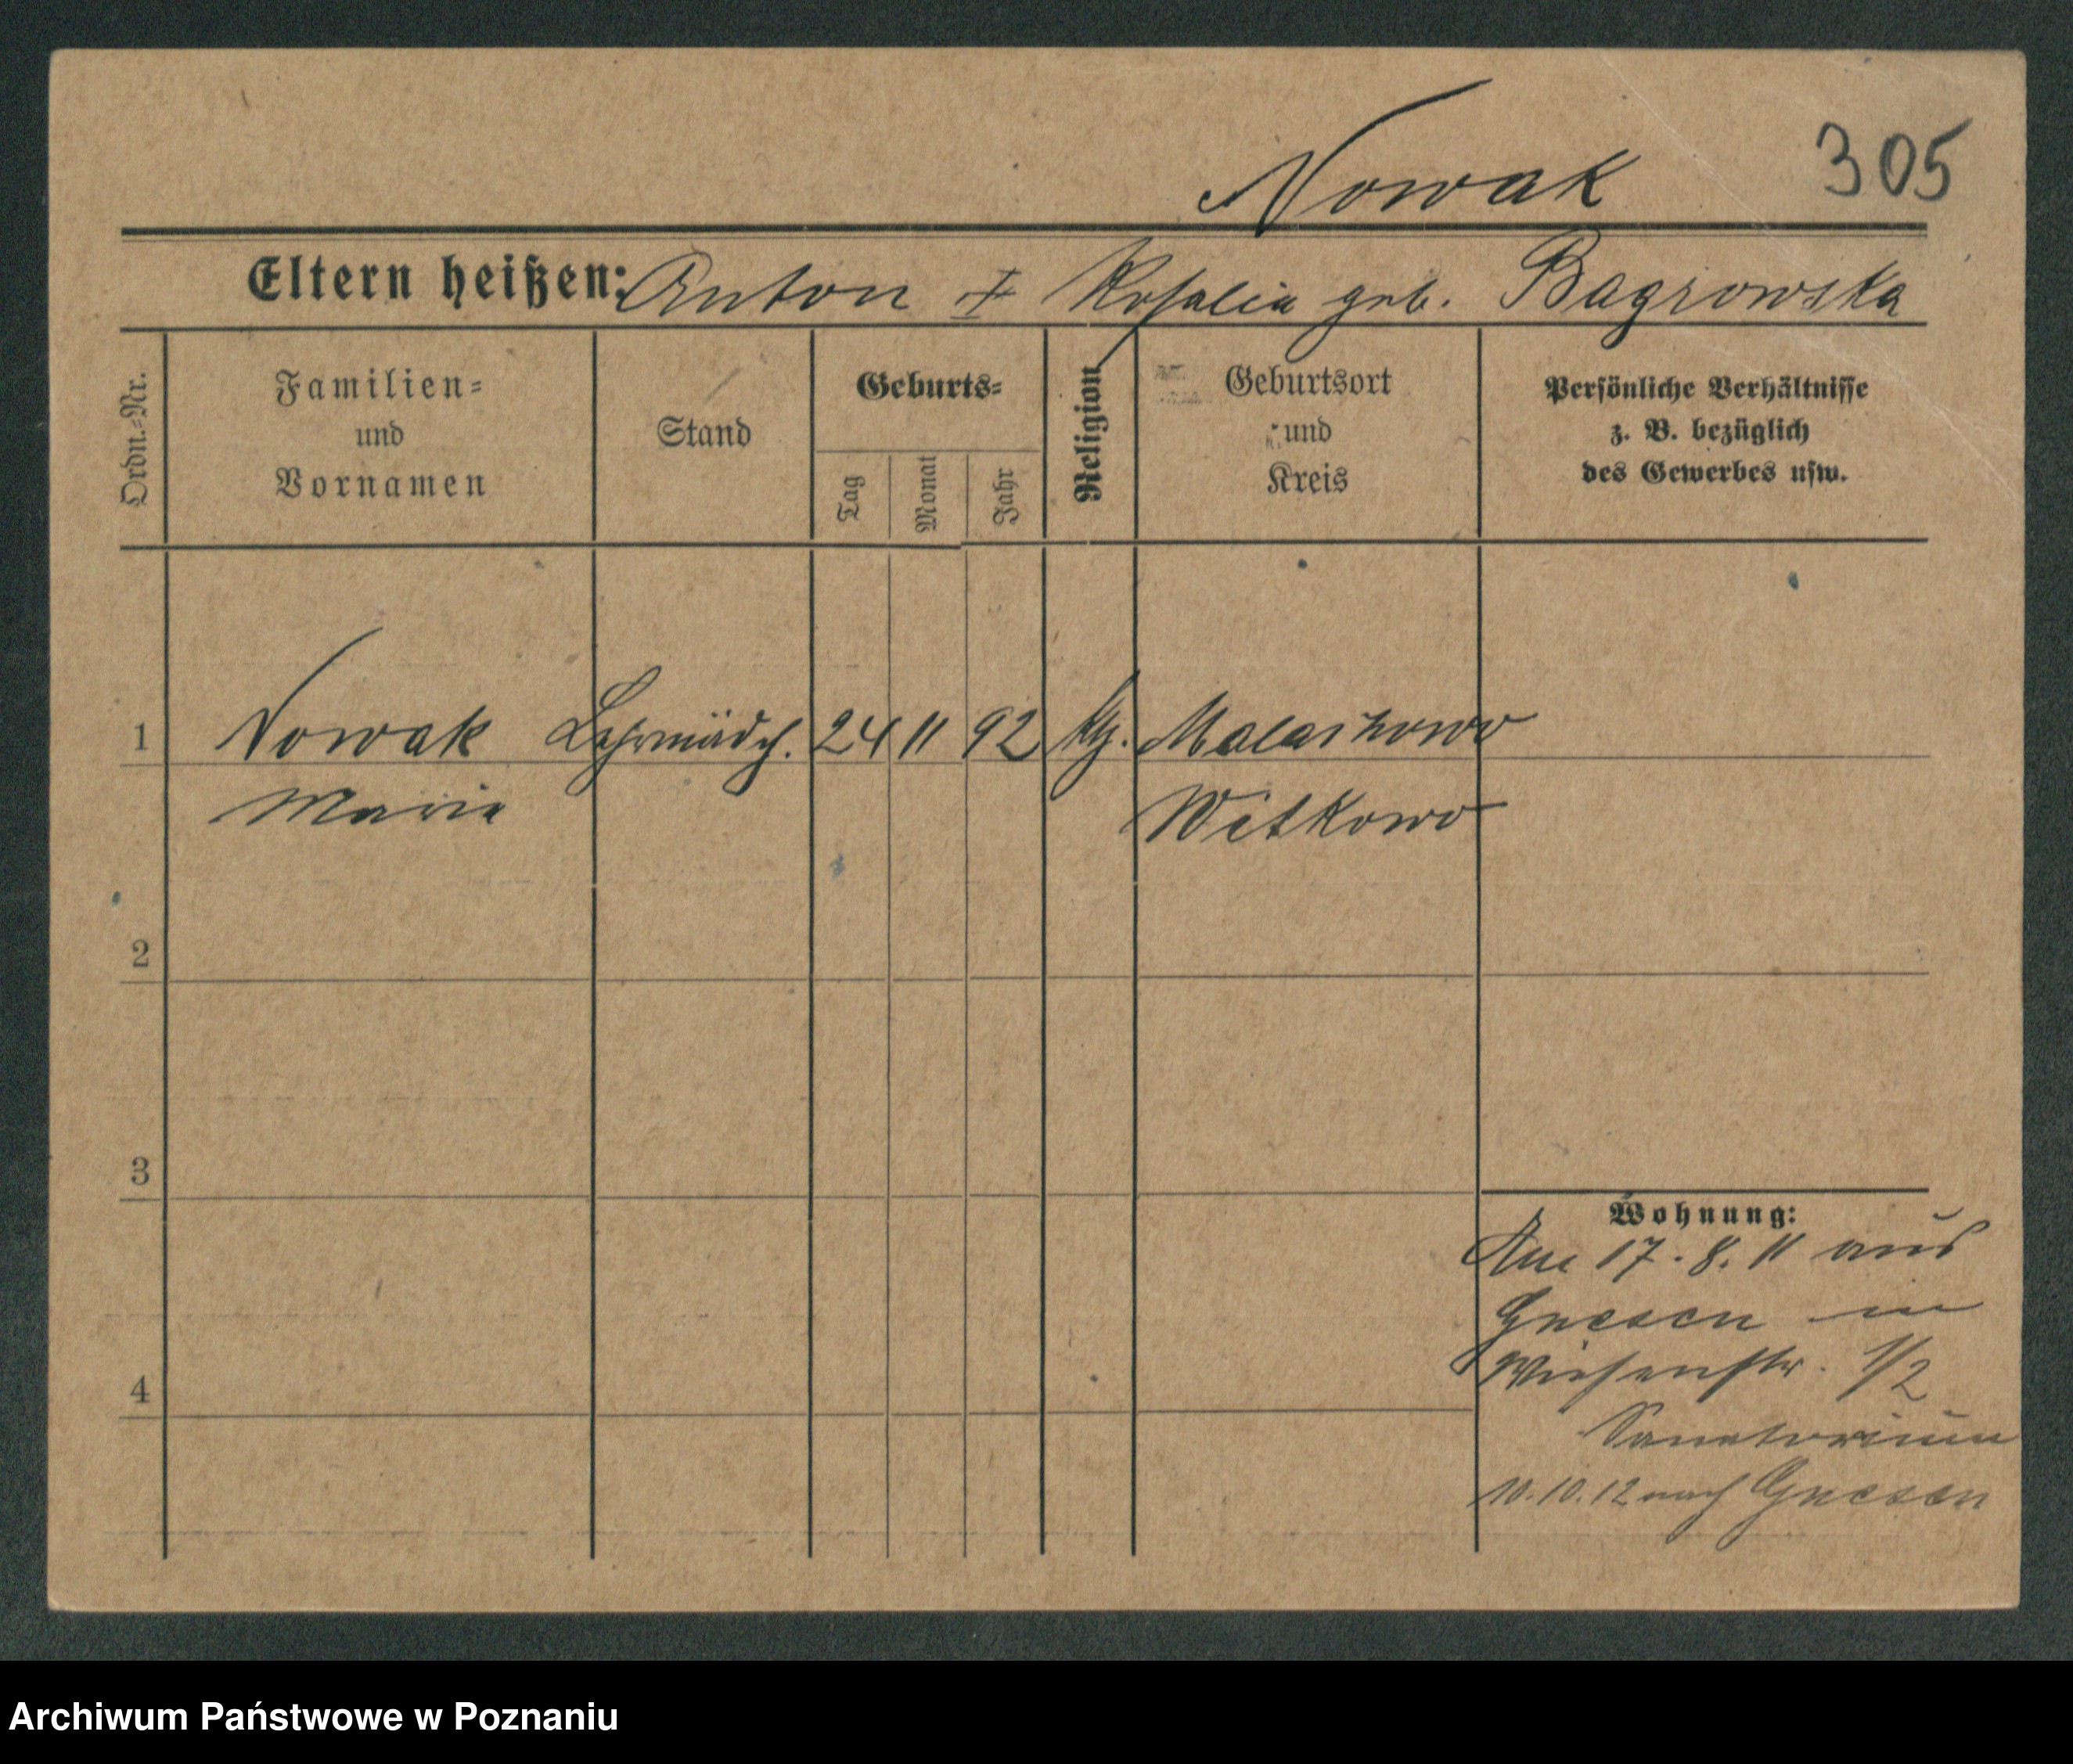 Nowak 305
Eltern heißen: Anton + Rosalia geb. Bagrowska
Ordn.-Nr.
Familien-
und
Vornamen
Stand
Geburts-
Tag
Monat
Jahr
Religion
Geburtsort
und
Kreis
Persönliche Verhältnisse
z. B. bezüglich
des Gewerbes usw.
1 Nowak Lehrmädch. 24 11 92 kth. Malachowo
Maria Witkowo
2
3
4
Wohnung:
Am 17.8.11 aus
Gnesen in
Wiesenstr. 1/2
Sanatorium
10.10.12 nach Gnesen
Archiwum Państwowe w Poznaniu